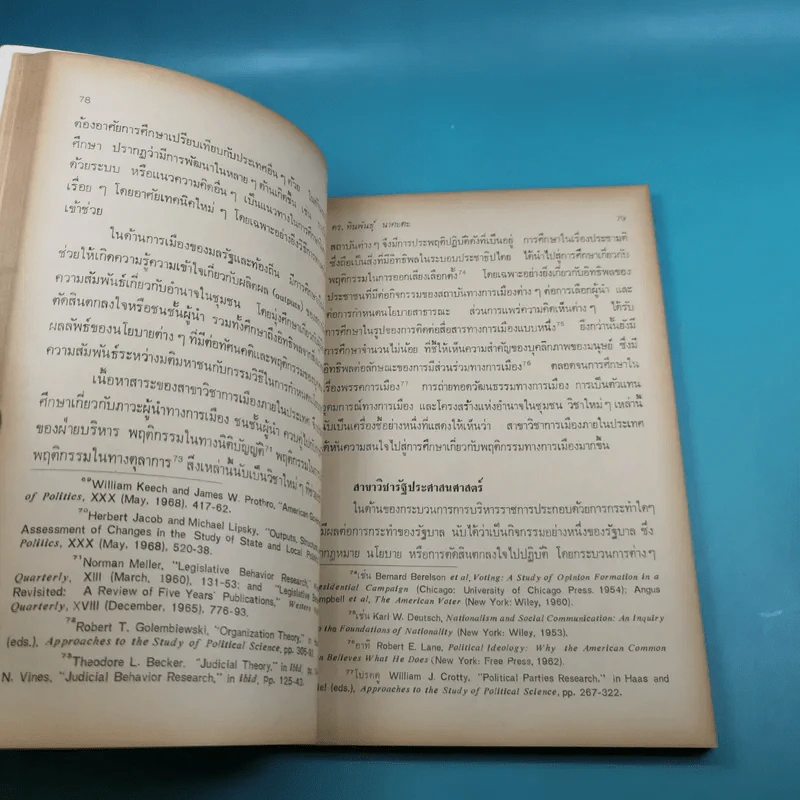 78
ต้องอาศัยการศึกษาเปรียบเทียบกับประเทศอื่น ๆ ด้วย
ศึกษา ปรากฏว่ามีการพัฒนาในหลาย ๆ ด้านเกิดขึ้น เช่น
ด้วยระบบ หรือแนวความคิดอื่น ๆ เป็นแนวทางในการศึกษา
เรื่อย ๆ โดยอาศัยเทคนิคใหม่ ๆ โดยเฉพาะอย่างยิ่งวิธีการ
เข้าช่วย
ในด้านการเมืองของมลรัฐและท้องถิ่น มีการศึกษา
ช่วยให้เกิดความรู้ความเข้าใจเกี่ยวกับผลิตผล (outputs) ของ
ความสัมพันธ์เกี่ยวกับอำนาจในชุมชน โดยมุ่งศึกษาเกี่ยวกับ
ตัดสินตกลงใจหรือชนชั้นผู้นำ รวมทั้งศึกษาถึงอิทธิพล
ผลลัพธ์ของนโยบายต่าง ๆ ที่มีต่อทัศนคติและพฤติกรรมของ
ความสัมพันธ์ระหว่างมติมหาชนกับกรรมวิธีในการกำหนด
เนื้อหาสาระของสาขาวิชาการเมืองภายในประเทศ
ศึกษาเกี่ยวกับภาวะผู้นำทางการเมือง ชนชั้นผู้นำ ควบคู่ไป
ของฝ่ายบริหาร พฤติกรรมในทางนิติบัญญัติ71 พฤติกรรมใน
พฤติกรรมในทางตุลาการ73 สิ่งเหล่านี้นับเป็นวิชาใหม่ ๆ
69William Keech and James W. Prothro, "American
of Politics, XXX (May, 1968), 417-62.
70Herbert Jacob and Michael Lipsky, "Outputs,
Assessment of Changes in the Study of State and Local
Politics, XXX (May, 1968), 520-38.
71Norman Meller, "Legislative Behavior Research,"
Quarterly, XIII (March, 1960), 131-53; and "Legislative
Revisited: A Review of Five Years' Publications," Western
Quarterly, XVIII (December, 1965), 776-93.
72Robert T. Golembiewski, "Organization Theory," in
(eds.), Approaches to the Study of Political Science, pp.
73Theodore L. Becker, "Judicial Theory," in Ibid,
N. Vines, "Judicial Behavior Research," in Ibid, pp. 125-43.
ดร. ทินพันธุ์ นาคะตะ 79
สถาบันต่าง ๆ จึงมีการประพฤติปฏิบัติดังที่เป็นอยู่ การศึกษาในเรื่องประชามติ
ซึ่งถือเป็นสิ่งที่มีอิทธิพลในระบอบประชาธิปไตย ได้นำไปสู่การศึกษาเกี่ยวกับ
พฤติกรรมในการออกเสียงเลือกตั้ง74 โดยเฉพาะอย่างยิ่งเกี่ยวกับอิทธิพลของ
ประชาชนที่มีต่อกิจกรรมของสถาบันทางการเมืองต่าง ๆ ต่อการเลือกผู้นำ และ
ต่อการกำหนดนโยบายสาธารณะ ส่วนการแพร่ความคิดเห็นต่าง ๆ ได้รับ
การศึกษาในรูปของการติดต่อสื่อสารทางการเมืองแบบหนึ่ง75 ยิ่งกว่านั้นยังมี
การศึกษาจำนวนไม่น้อย ที่ชี้ให้เห็นความสำคัญของบุคลิกภาพของมนุษย์ ซึ่งมี
อิทธิพลต่อลักษณะของการมีส่วนร่วมทางการเมือง76 ตลอดจนการศึกษาใน
เรื่องพรรคการเมือง77 การถ่ายทอดวัฒนธรรมทางการเมือง การเป็นตัวแทน
อุดมการณ์ทางการเมือง และโครงสร้างแห่งอำนาจในชุมชน วิชาใหม่ ๆ เหล่านี้
นับเป็นเครื่องชี้อย่างหนึ่งที่แสดงให้เห็นว่า สาขาวิชาการเมืองภายในประเทศ
หันความสนใจไปสู่การศึกษาเกี่ยวกับพฤติกรรมทางการเมืองมากขึ้น
สาขาวิชารัฐประศาสนศาสตร์
ในด้านของกระบวนการการบริหารราชการประกอบด้วยการกระทำใดๆ
มีผลต่อการกระทำของรัฐบาล นับได้ว่าเป็นกิจกรรมอย่างหนึ่งของรัฐบาล ซึ่ง
กฎหมาย นโยบาย หรือการตัดสินตกลงใจไปปฏิบัติ โดยกระบวนการต่างๆ
74เช่น Bernard Berelson et al, Voting: A Study of Opinion Formation in a
Presidential Campaign (Chicago: University of Chicago Press. 1954); Angus
Campbell et al, The American Voter (New York: Wiley, 1960).
75เช่น Karl W. Deutsch, Nationalism and Social Communication: An Inquiry
the Foundations of Nationality (New York: Wiley, 1953).
76อาทิ Robert E. Lane, Political Ideology: Why the American Common
Believes What He Does (New York: Free Press, 1962).
77โปรดดู William J. Crotty, "Political Parties Research," in Haas and
(eds.), Approaches to the Study of Political Science, pp. 267-322.